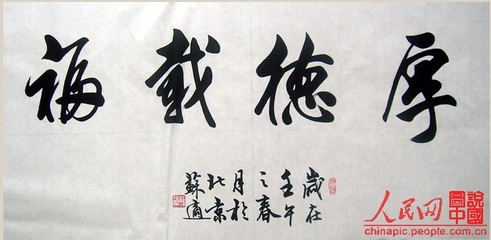 厚德載福
歲在
壬午
之春
月於
北京
蘇適
人民网 圖說中國
chinapic.people.com.cn